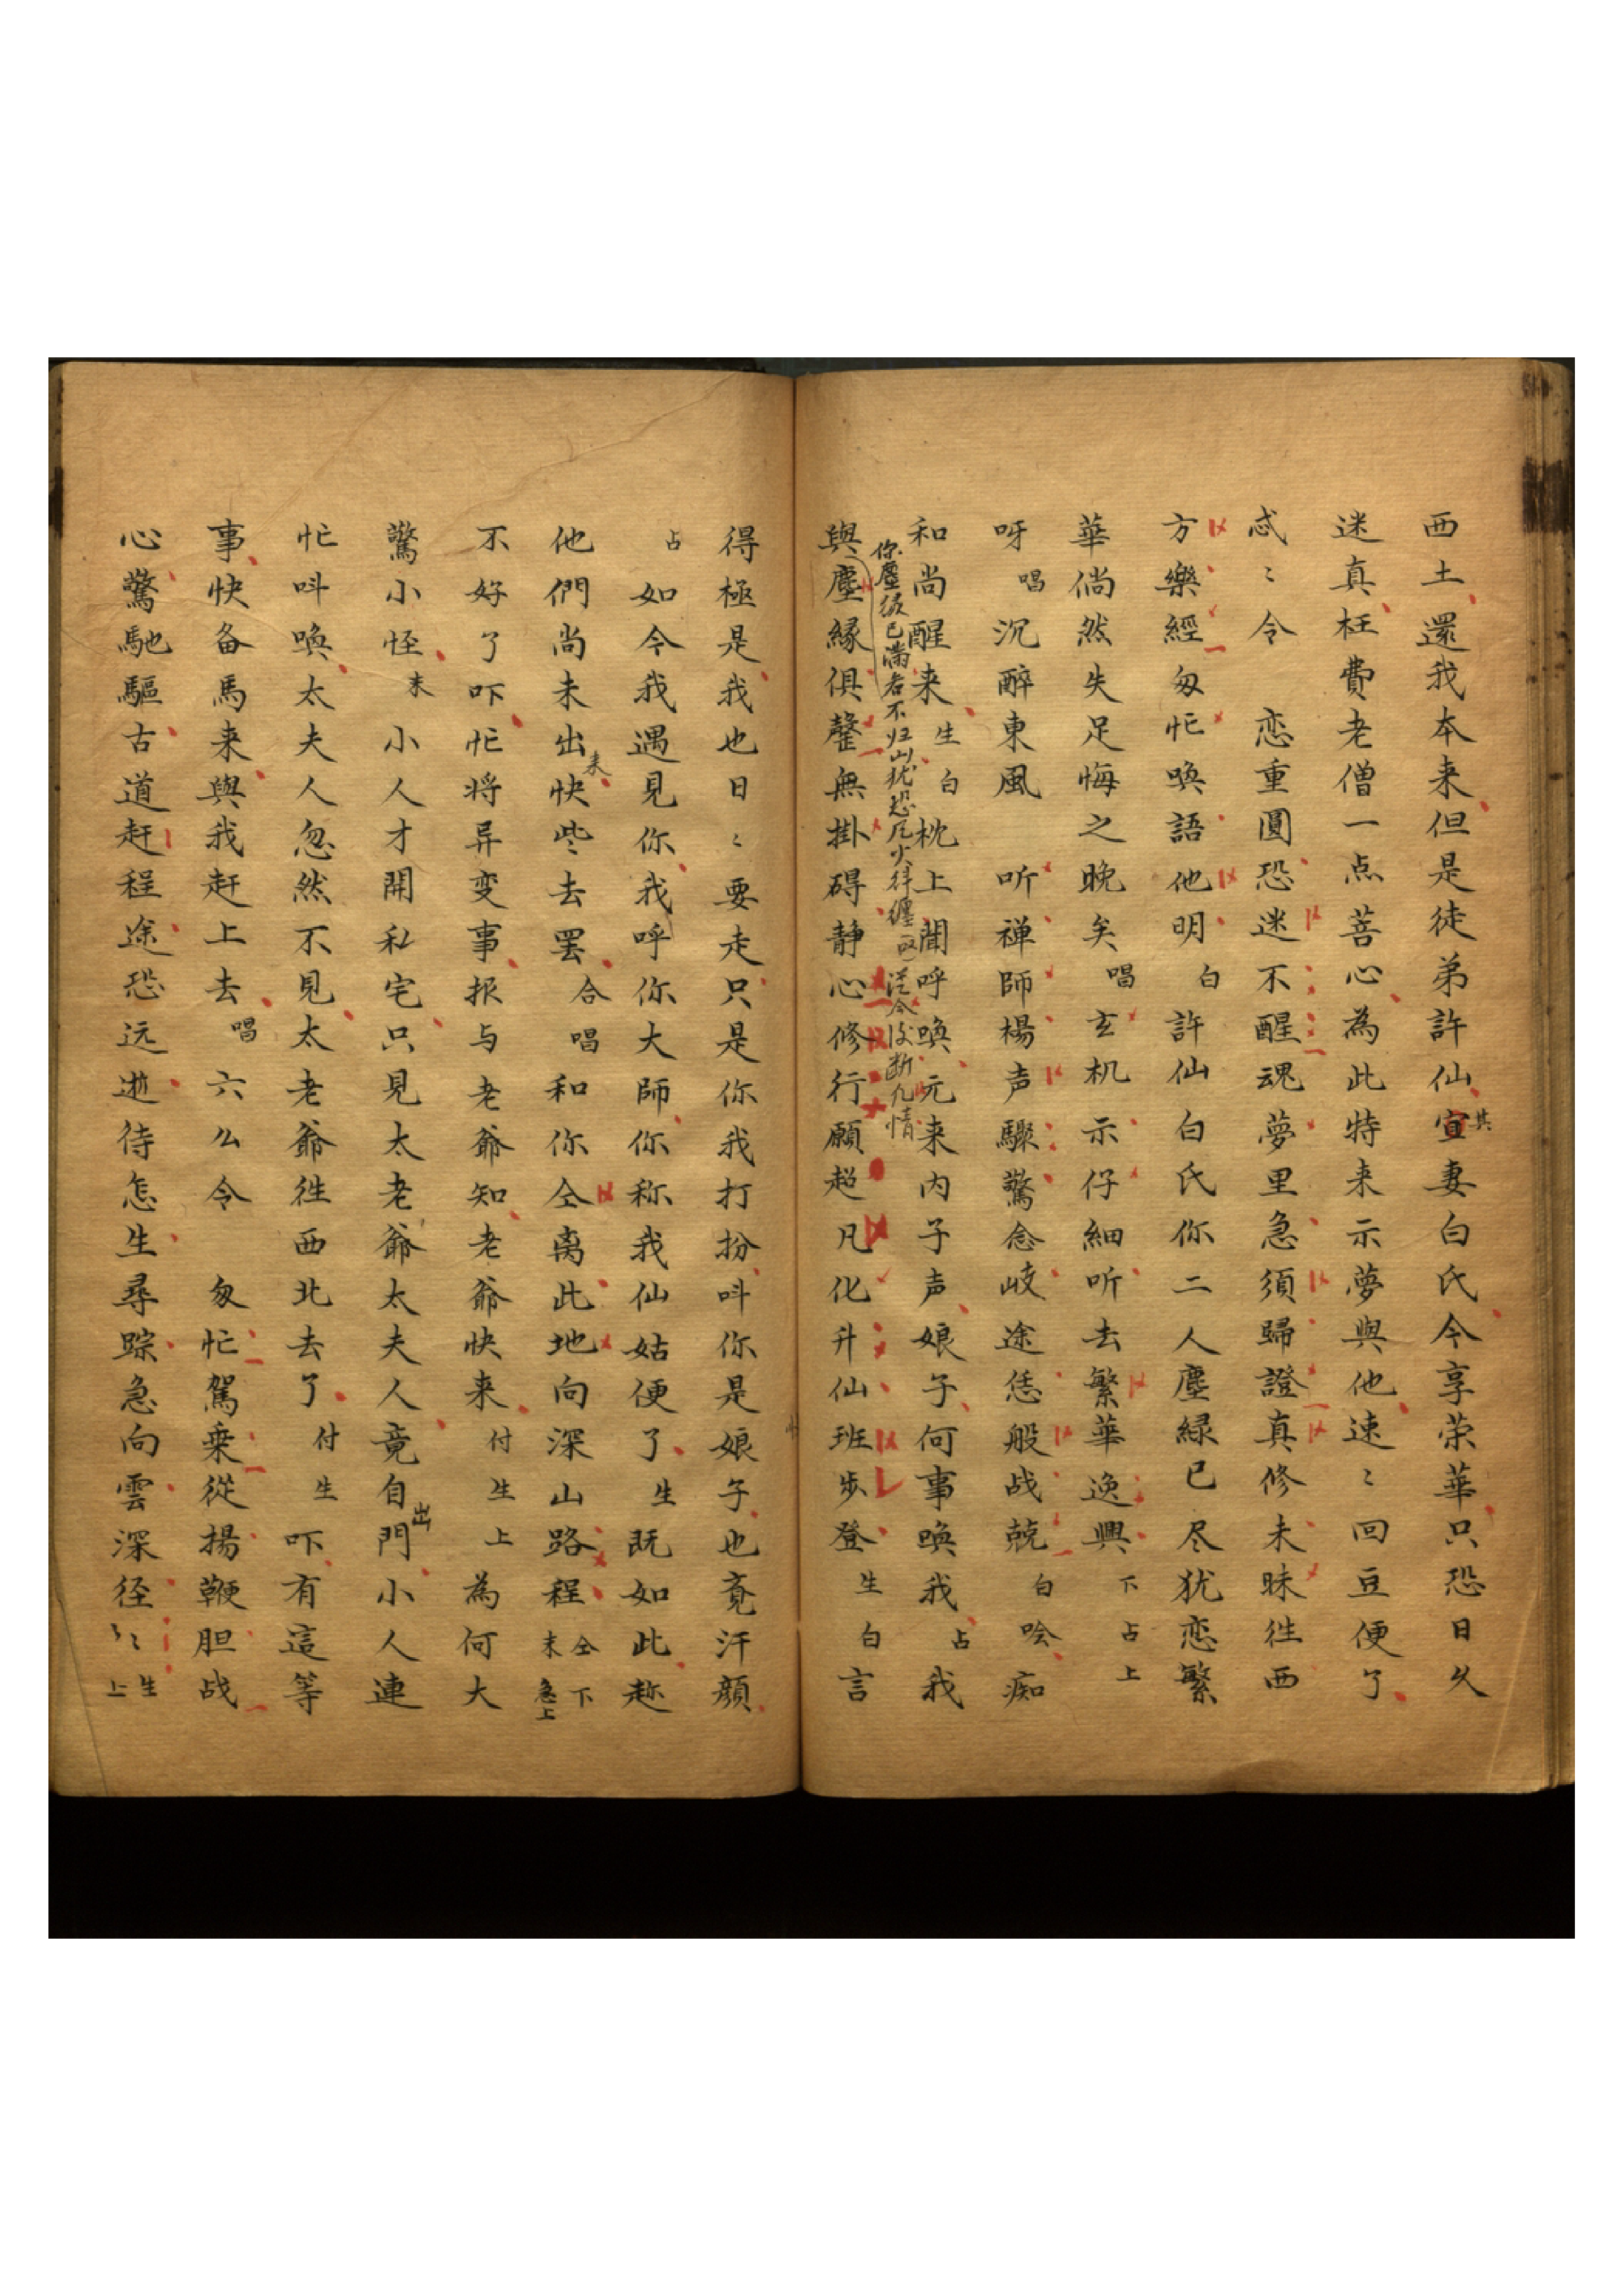 西土還我本来但是徒弟許仙宣其妻白氏今享荣華只恐日久
迷真枉費老僧一点菩心為此特来示夢與他速〻回豆便了
忒〻令　恋重圓恐迷不醒魂夢里急須歸證真修未昧徃西
方樂經匆忙喚語他明白許仙白氏你二人塵緑已尽犹恋繁
華倘然失足悔之晚矣唱玄机示仔細听去繁華逸興下占上
呀唱沉醉東風　听禅師楊声驟驚念岐途恁般战兢白唅痴
和尚醒来生白枕上聞呼喚元来内子声娘子何事喚我占我
你塵缘已滿若不归山犹恐
從今後断凡情
與塵緣俱罄無掛碍静心修行願超凡化升仙班步登生白言
得極是我也日〻要走只是你我打扮呌你是娘子也竟汗顔
占如今我遇見你我呼你大師你称我仙姑便了生既如此趂
他們尚未出来快些去罢合唱和你仝离此地向深山路程仝下末急上
不好了吓忙将异变事报与老爺知老爺快来付生上為何大
驚小怪末小人才開私宅只見太老爺太夫人竟自出門小人連
忙呌喚太夫人忽然不見太老爺徃西北去了付生吓有這等
事快备馬来與我赶上去唱六么令　匆忙駕乗從揚鞭胆战
心驚馳驅古道赶程途恐远逝待怎生尋踪急向雲深径〻〻生上